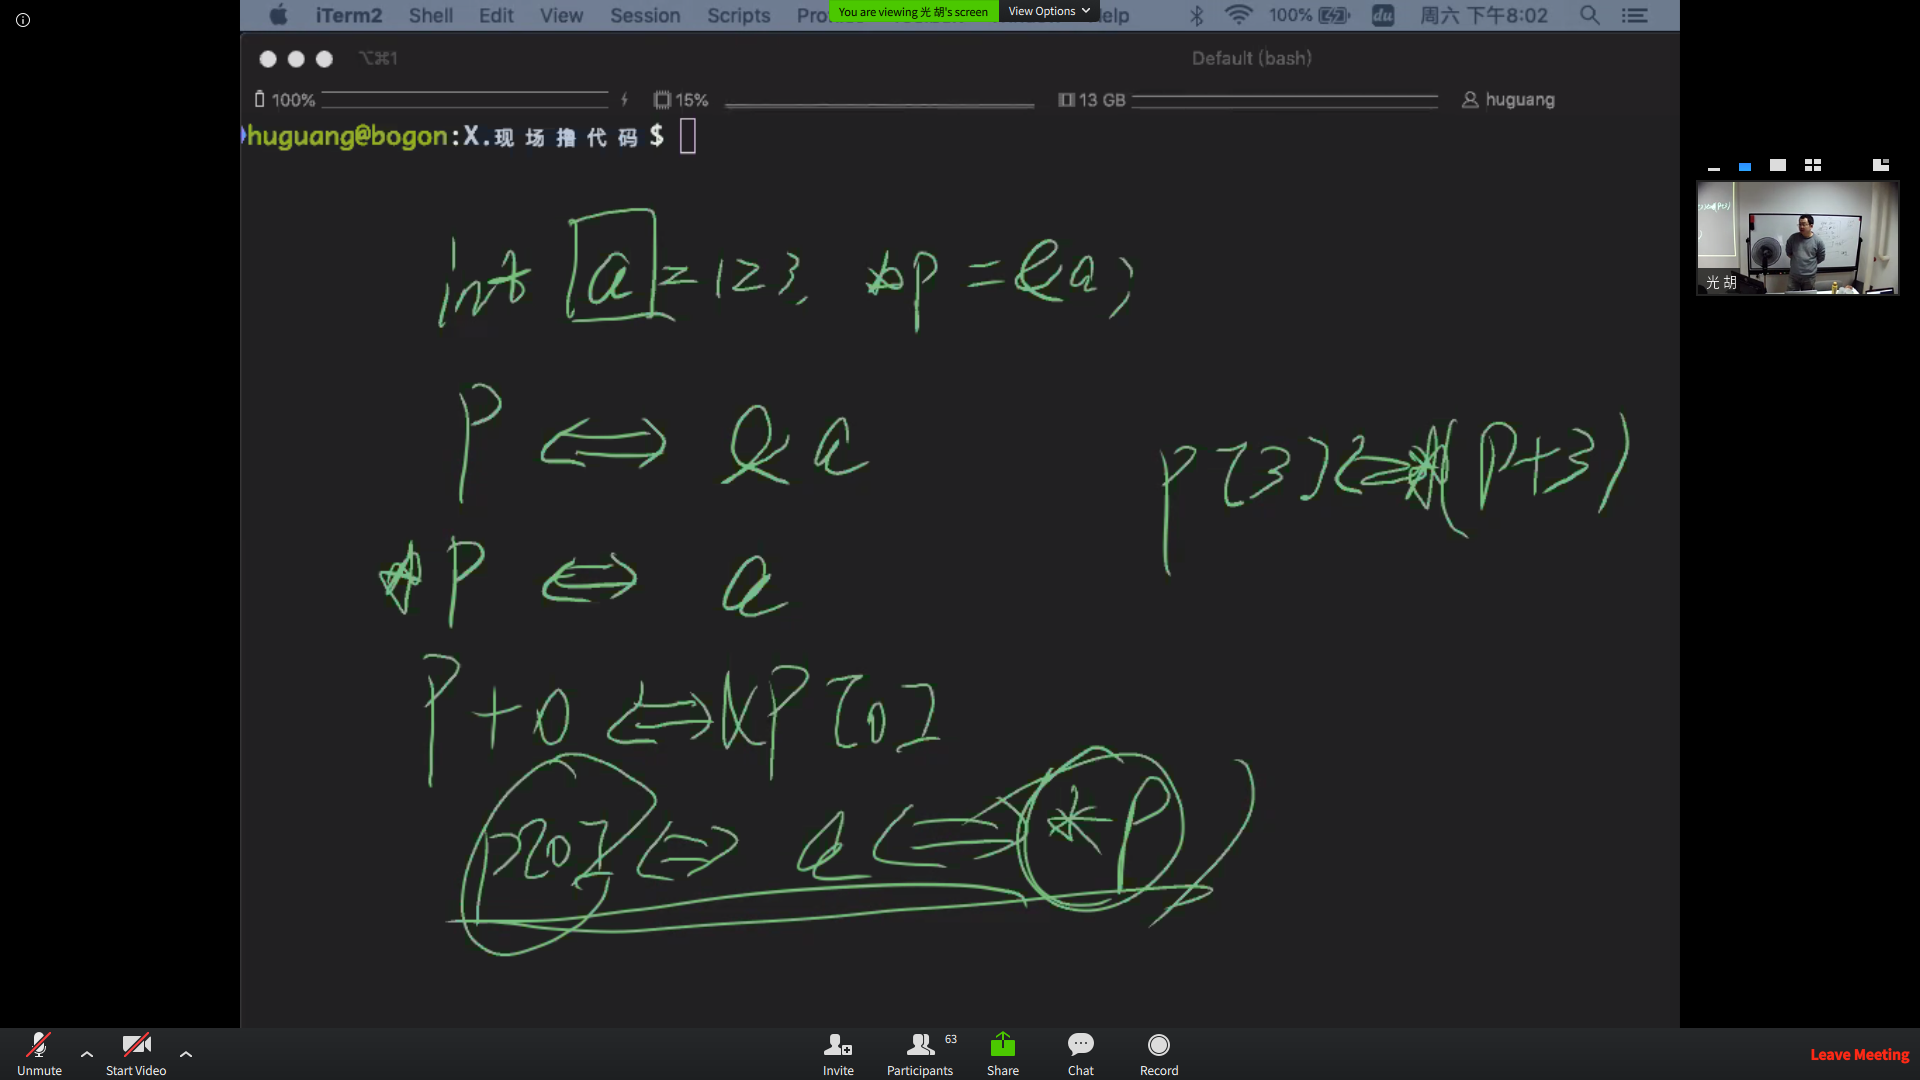 iTerm2 Shell Edit View Session Scripts
You are viewing 光 胡's screen View Options
100% du 周六 下午8:02
⌥⌘1 Default (bash)
100% 15% 13 GB huguang
huguang@bogon:X.现场撸代码 $
int a = 123, *p = &a;
P ⇔ &a
P[3] ⇔ *(P+3)
*P ⇔ a
P+0 ⇔ &P[0]
P[0] ⇔ a ⇔ *P
光 胡
Unmute Start Video Invite Participants 63 Share Chat Record Leave Meeting